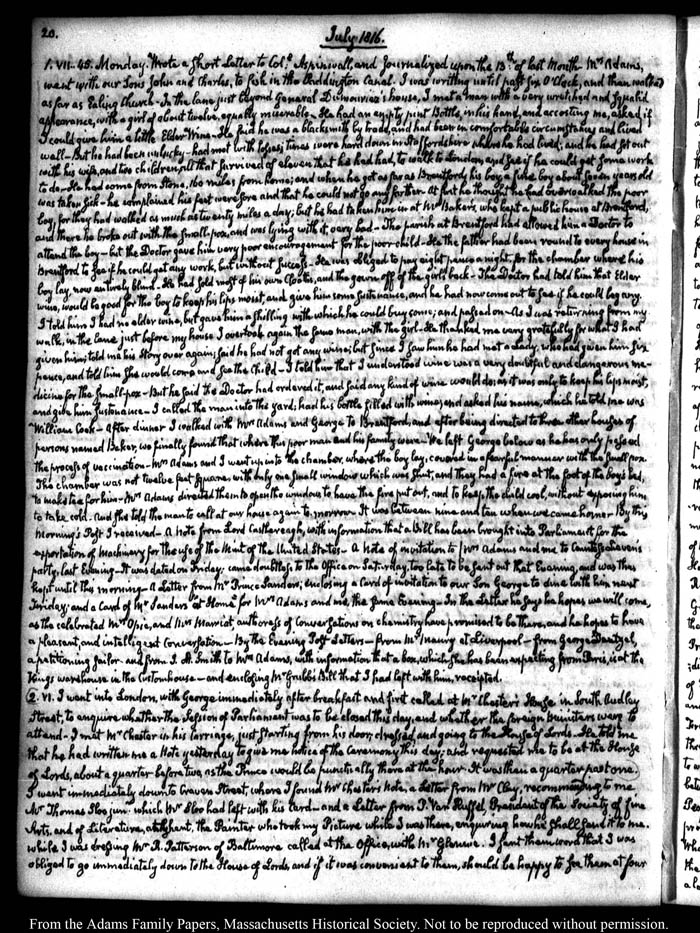 20.
July 1816.
1. VII. 45. Monday. Wrote a short Letter to Col.l Aspinwall, and Journalized upon the 13th of last Month. Mrs Adams,
went with our Sons John and Charles, to fish in the Paddington Canal. I was writing until past six O'Clock, and then walked
as far as Ealing Church. In the lane just beyond General Dumouriez's house, I met a man with a very wretched and squalid
appearance, with a girl of about twelve, equally miserable. He had an empty pint Bottle, in his hand, and accosting me, asked if
I could give him a little Elder Wine. He said he was a blacksmith by trade, and had been in comfortable circumstances and lived
well. But he had been unlucky. had met with losses; times were hard down in Staffordshire where he had lived; and he had set out
with his wife, and two children, all that survived of eleven that he had had, to walk to London, and see if he could get some work
to do. He had come from Stone, 160 miles from home; and when he got as far as Brentford, his boy, a fine boy about seven years old
was taken sick. he complained his feet were sore and that he could not go any further. At first he thought he had overwalked the poor
boy, for they had walked as much as twenty miles a day; but he had taken him in at Mr Baker's, who kept a public house at Brentford,
and there he broke out with the Small-pox, and was lying with it, very bad. The parish at Brentford had allowed him a Doctor to
attend the boy. but the Doctor gave him very poor encouragement for the poor child. He the father had been round to every house in
Brentford to see if he could get any work, but without success. He was obliged to pay eight pence a night, for the chamber where his
boy lay, now entirely blind. He had sold most of his own Cloaths, and the gown off of the girl's back. The Doctor had told him that Elder
wine, would be good for the boy to keep his lips moist, and give him some sustenance, and he had now come out to see if he could beg any.
I told him I had no elder wine, but gave him a shilling with which he could buy some; and passed on. As I was returning from my
walk, in the lane just before my house I overtook again the same man, with the girl. He thanked me very gratefully for what I had
given him; told me his story over again; said he had not got any wine; but since I saw him he had met a Lady, who had given him six
pence, and told him she would come and see the Child. I told him that I understood wine was a very doubtful and dangerous me-
dicine for the Small-pox. But he said the Doctor had ordered it, and said any kind of wine would do; as it was only to keep his lips moist,
and give him sustenance. I called the man into the yard; had his bottle filled with wine; and asked his name, which he told me was
William Cook. After dinner I walked with Mrs Adams and George to Brentford; and after being directed to three other houses of
persons named Baker, we finally found that where this poor man and his family were. We left George below as he has only passed
the process of vaccination. Mrs Adams and I went up into the chamber, where the boy lay, covered in a fearful manner with the Small-pox.
The chamber was not twelve feet square, with only one small window which was shut, and they had a fire at the foot of the boy's bed,
to make tea for him. Mrs Adams directed them to open the window, to have the fire put out, and to keep the child cool, without exposing him
to take cold. And she told the man to call at our house again to-morrow. It was between nine and ten when we came home. By this
Morning's Post I received. A Note from Lord Castlereagh, with information that a Bill has been brought into Parliament for the
exportation of Machinery for the use of the Mint of the United States. A Note of invitation to Mrs Adams and me to Countess
party, last Evening. It was dated on Friday; came doubtless to the Office on Saturday, too late to be sent out that Evening, and was thus
kept until this morning. A Letter from Mr Prince Sanders; enclosing a Card of invitation to our Son George to dine with him next
Friday; and a Card of Mr Sanders "At Home" for Mrs Adams and me, the same Evening. In the Letter he says he hopes we will come,
as the celebrated Mrs Opie, and Mrs Marriot, authoress of Conversations on chemistry have promised to be there, and he hopes to have
a pleasant, and intelligent Conversation. By the Evening Post Letters. from Mr Maury at Liverpool. from George
a petitioning Sailor. and from J. A. Smith to Mrs Adams, with information that a box, which she has been expecting from Paris, is at the
King's warehouse in the Customhouse. and enclosing Mr Grubb's Bill that I had left with him, receipted.
2. VI. I went into London, with George immediately after breakfast and first called at Mr Chester's House in South Audley
Street, to enquire whether the Session of Parliament was to be closed this day, and whether the foreign Ministers were to
attend. I met Mr Chester in his carriage, just starting from his door; dressed, and going to the House of Lords. He told me
that he had written me a Note yesterday to give me notice of the Ceremony this day; and requested me to be at the House
of Lords, about a quarter before two, as the Prince would be punctually there at the hour. It was then a quarter past one.
I went immediately down to Craven Street, where I found Mr Chester's Note, a Letter from Mr Clay, recommending to me
Mr Thomas Sloo jun.r which Mr Sloo had left with his card. and a Letter from J. Van Huffel, President of the Society of fine
Arts, and of Literature, at Ghent, the Painter who took my Picture while I was there, enquiring how he shall send it to me.
while I was dressing Mr R. Patterson of Baltimore called at the Office, with Mr Glennie. I sent them word that I was
obliged to go immediately down to the House of Lords, and if it was convenient to them, should be happy to see them at four
From the Adams Family Papers, Massachusetts Historical Society. Not to be reproduced without permission.